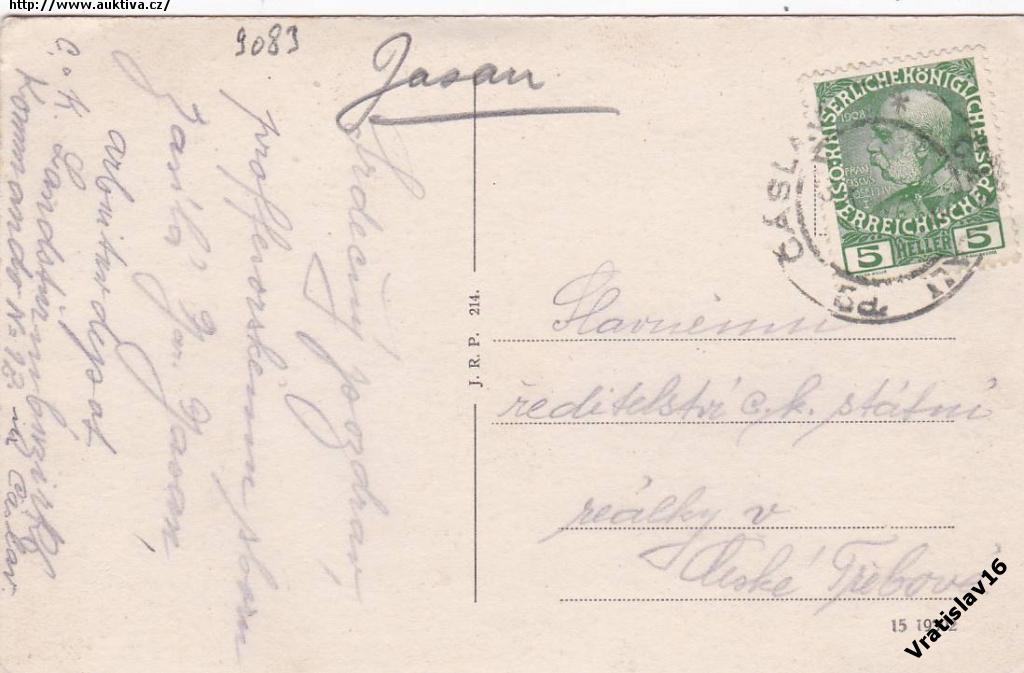 http://www.auktiva.cz/
9083
Jasan
Srdečný pozdrav
professorskému sboru
zasílá Jar. Jasan,
c. k. Landsturmbezirks
Kommando No 12 in Časlau
KAISERLICHE KÖNIGLICHE
ÖSTERREICHISCHE POST
1908
5 HELLER 5
ČÁSL
J. R. P. 214.
Slavnému
ředitelství c. k. státní
reálky v
České Třebové
15 19
Vratislav16